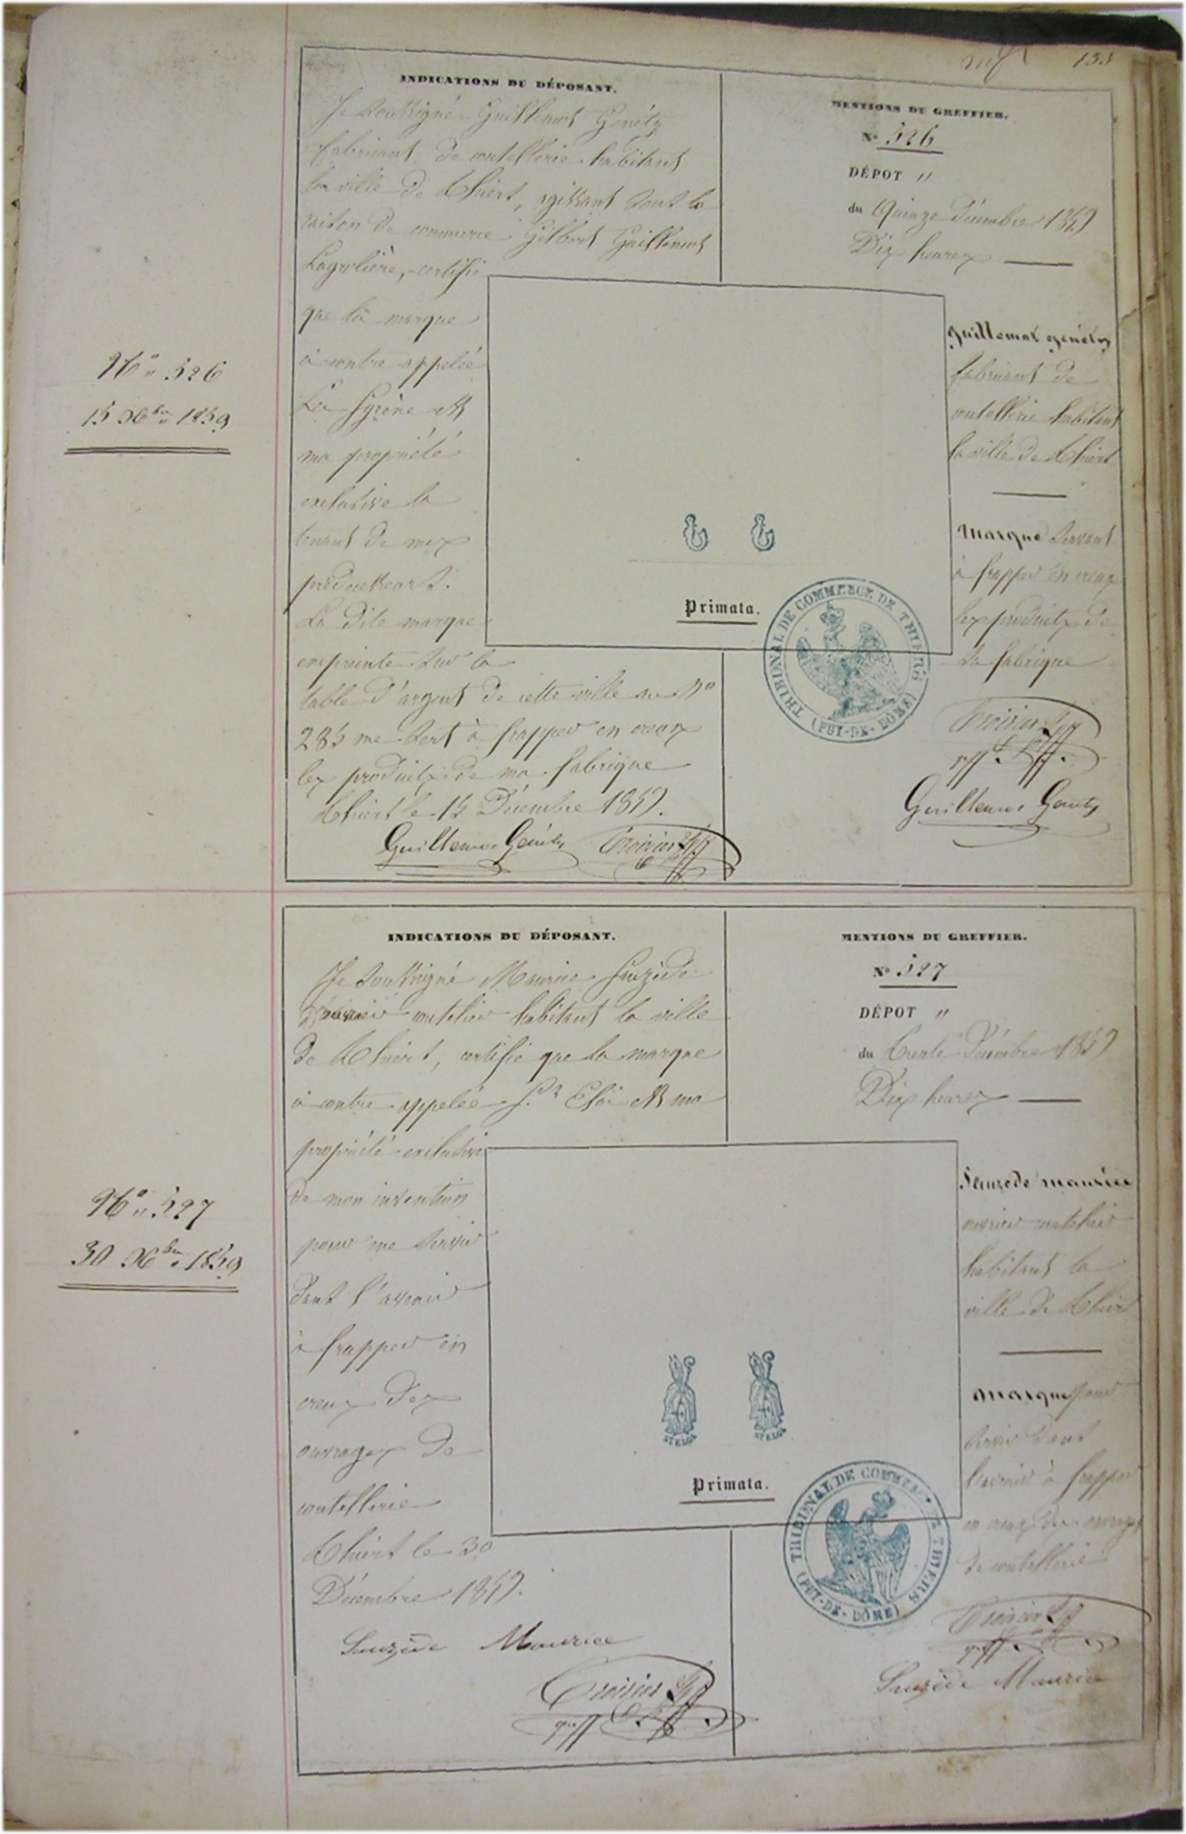 133
N° 526
15 Xbre 1859
INDICATIONS DU DÉPOSANT.
Je soussigné Guillemot Genéty
fabricant de coutellerie habitant
la ville de Thiers, agissant sous la
raison de commerce Gilbert Guillemot
Lagrolière, certifie
que la marque
à contre appelée
La Syrène est
ma propriété
exclusive la
tenant de mes
prédécesseurs.
La dite marque
empreinte sur la
table d'argent de cette ville au N°
285 me sert à frapper en creux
les produits de ma fabrique
Thiers le 15 Décembre 1859.
Guillemot Genéty
MENTIONS DU GREFFIER.
N° 526
DÉPOT "
du Quinze Décembre 1859
Dix heures
Guillemot Genéty
fabricant de
coutellerie habitant
la ville de Thiers
Marque servant
à frapper en creux
les produits de
sa fabrique
Guillemot Genéty
Primata.
TRIBUNAL DE COMMERCE DE THIERS
(PUY-DE-DÔME)
N° 527
30 Xbre 1859
INDICATIONS DU DÉPOSANT.
Je soussigné Maurice Sauzède
ouvrier coutelier habitant la ville
de Thiers, certifie que la marque
à contre appelée St Eloi est ma
propriété exclusive
de mon invention
pour me servir
dans l'avenir
à frapper en
creux des
ouvrages de
coutellerie
Thiers le 30
Décembre 1859.
Sauzède Maurice
MENTIONS DU GREFFIER.
N° 527
DÉPOT "
du Trente Décembre 1859
Dix heures
Sauzede maurice
ouvrier coutelier
habitant la
ville de Thiers
Marque pour
servir dans
l'avenir à frapper
en creux des ouvrages
de coutellerie
Sauzède Maurice
ST ELOI
ST ELOI
Primata.
TRIBUNAL DE COMMERCE DE THIERS
(PUY-DE-DÔME)